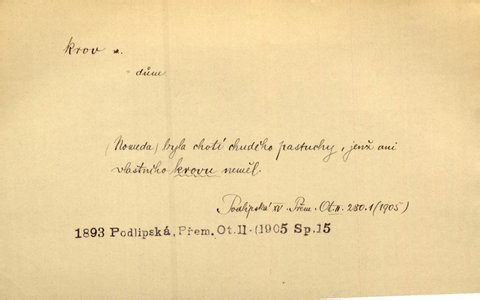 krov m.
dům
(Nomeda) byla chotí chudého pastuchy, jenž ani
vlastního krovu neměl.
Podlipská XV. Přem. Ot. II. 230.1 (1905)
1893 Podlipská, Přem. Ot. II-(1905 Sp.15